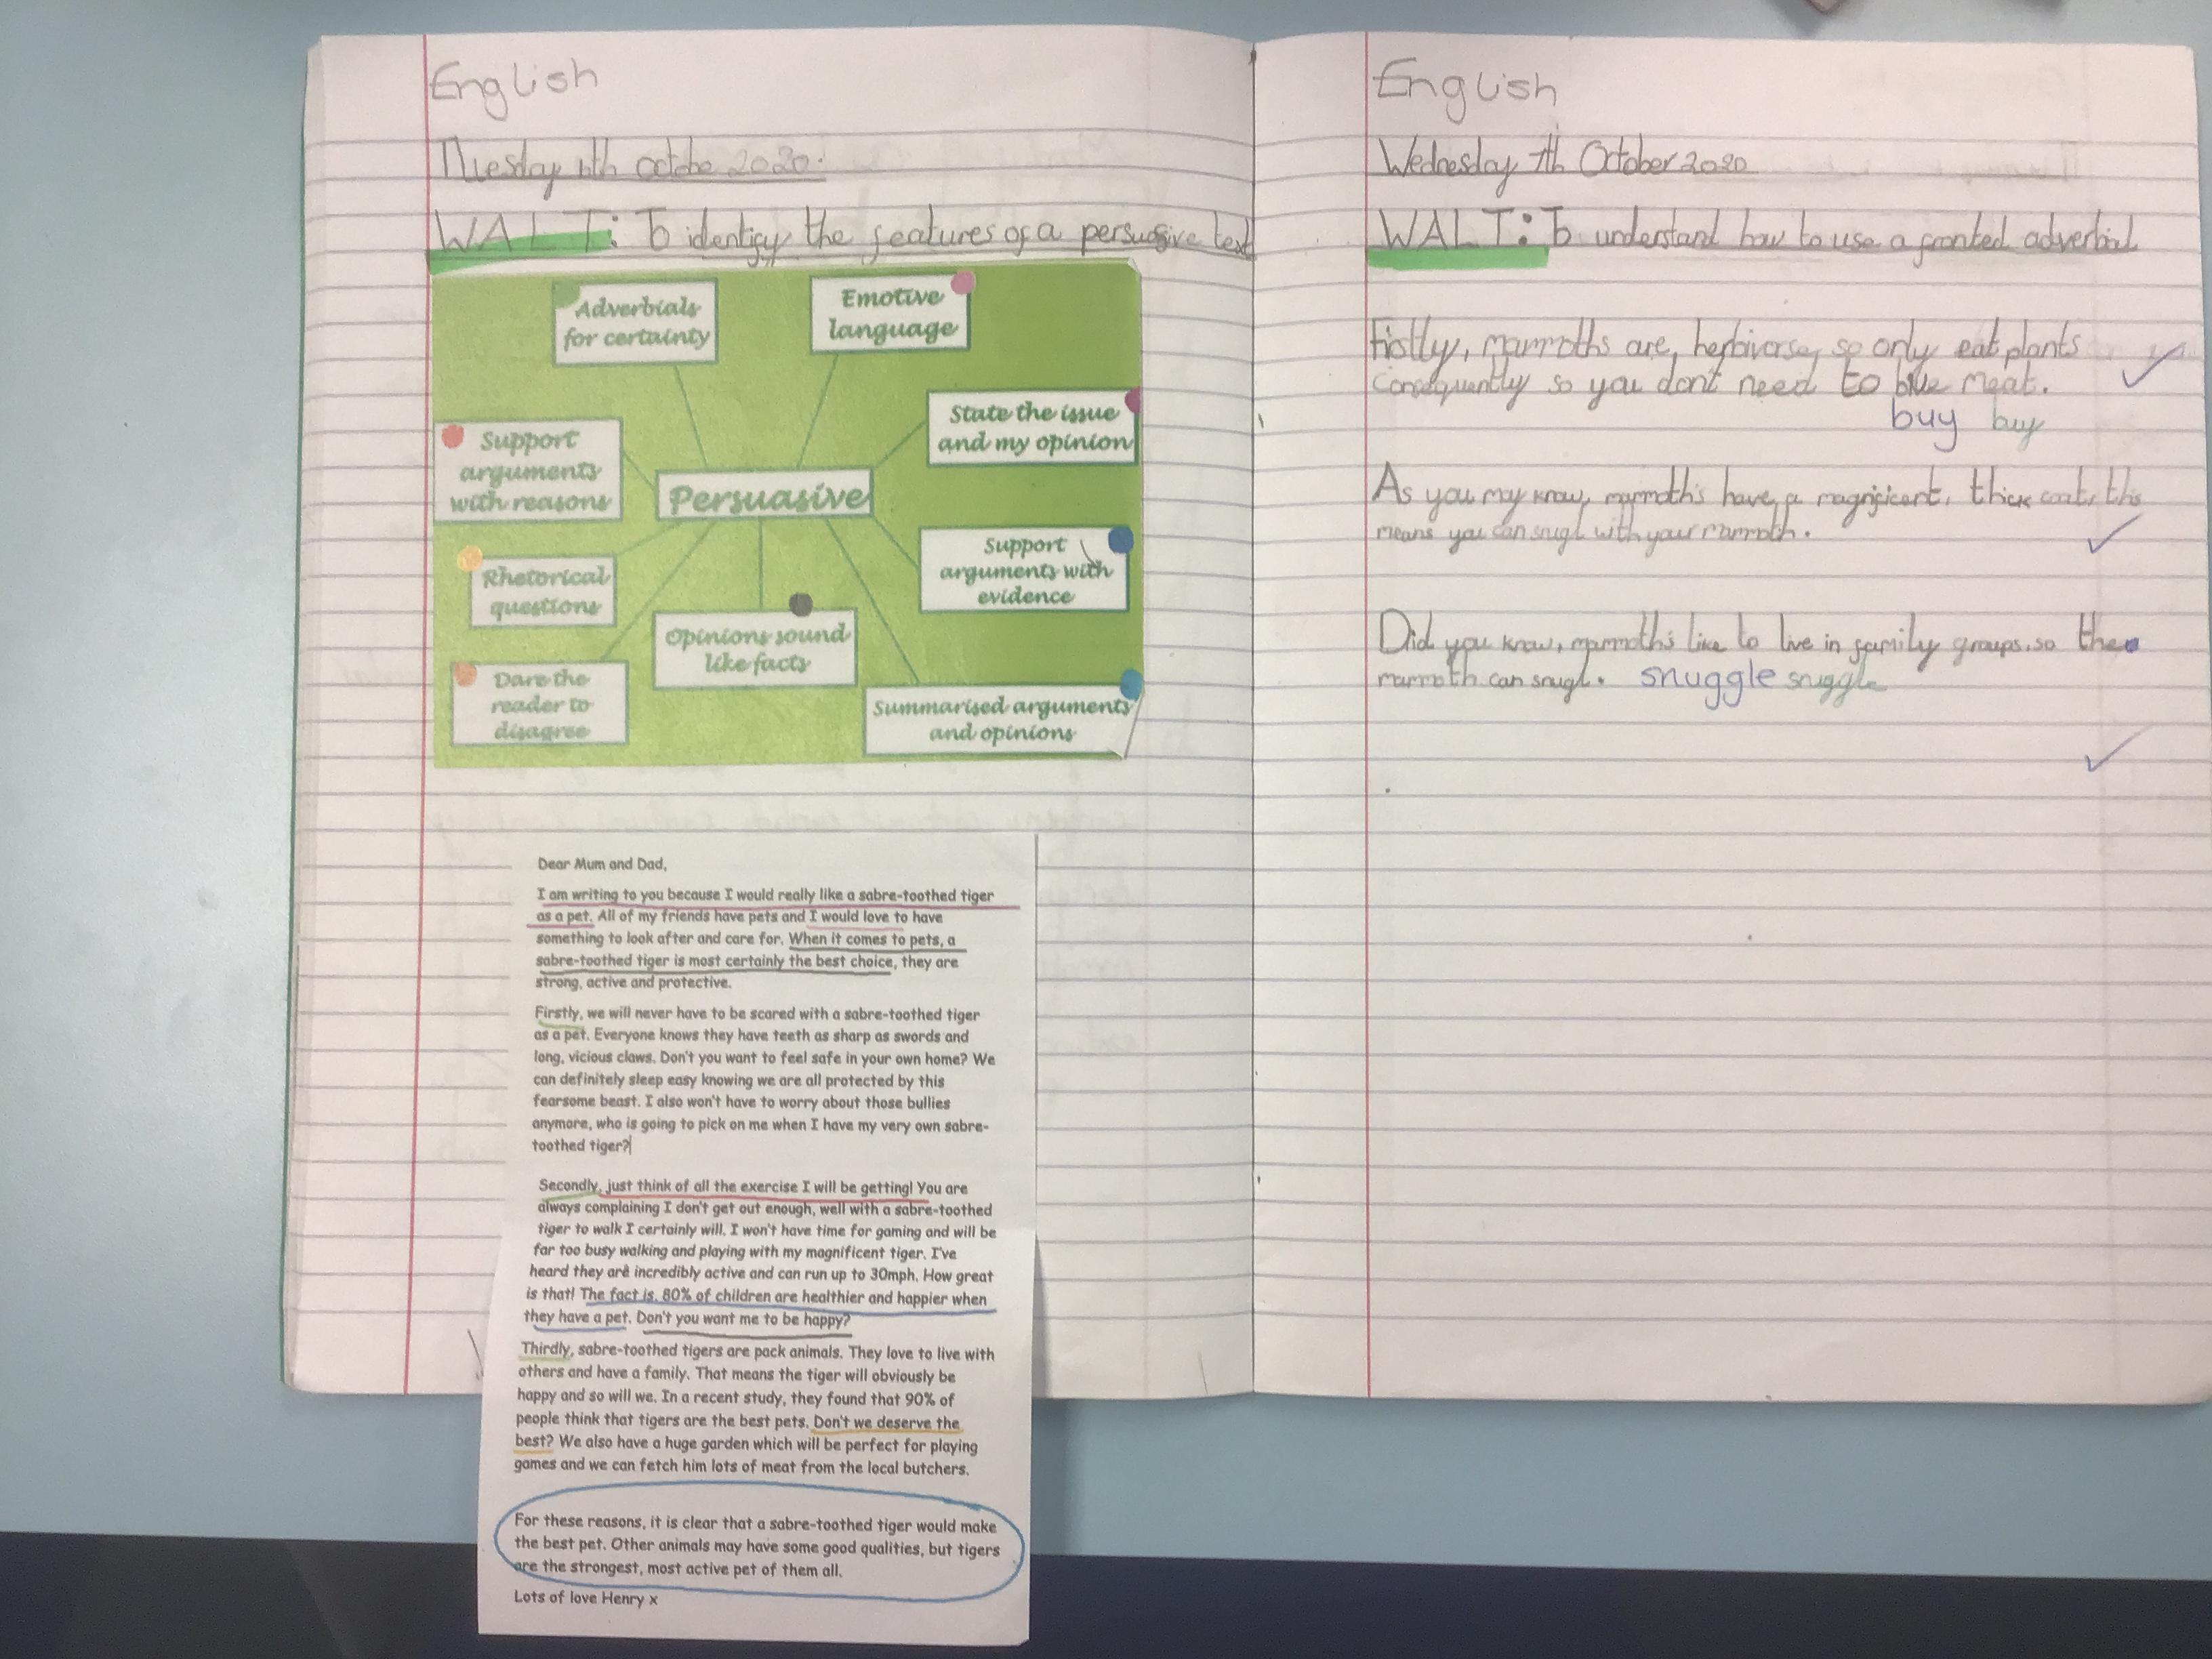 English
Tuesday 6th octobe 2020.
WALT: To identify the features of a persuasive text
Adverbials
for certainty
Emotive
language
State the issue
and my opinion
Support
arguments
with reasons
Persuasive
Support
arguments with
evidence
Rhetorical
questions
Opinions sound
like facts
Dare the
reader to
disagree
Summarised arguments
and opinions
Dear Mum and Dad,
I am writing to you because I would really like a sabre-toothed tiger
as a pet. All of my friends have pets and I would love to have
something to look after and care for. When it comes to pets, a
sabre-toothed tiger is most certainly the best choice, they are
strong, active and protective.
Firstly, we will never have to be scared with a sabre-toothed tiger
as a pet. Everyone knows they have teeth as sharp as swords and
long, vicious claws. Don't you want to feel safe in your own home? We
can definitely sleep easy knowing we are all protected by this
fearsome beast. I also won't have to worry about those bullies
anymore, who is going to pick on me when I have my very own sabre-
toothed tiger?
Secondly, just think of all the exercise I will be getting! You are
always complaining I don't get out enough, well with a sabre-toothed
tiger to walk I certainly will. I won't have time for gaming and will be
far too busy walking and playing with my magnificent tiger. I've
heard they are incredibly active and can run up to 30mph. How great
is that! The fact is, 80% of children are healthier and happier when
they have a pet. Don't you want me to be happy?
Thirdly, sabre-toothed tigers are pack animals. They love to live with
others and have a family. That means the tiger will obviously be
happy and so will we. In a recent study, they found that 90% of
people think that tigers are the best pets. Don't we deserve the
best? We also have a huge garden which will be perfect for playing
games and we can fetch him lots of meat from the local butchers.
For these reasons, it is clear that a sabre-toothed tiger would make
the best pet. Other animals may have some good qualities, but tigers
are the strongest, most active pet of them all.
Lots of love Henry x
English
Wednesday 7th October 2020
WALT: To understand how to use a fronted adverbial
Firstly, mammoths are, so only eat plants
Consequently so you don't need to meat.
buy buy
As you may know, mammoth's have a magnificent, thick coat, this
means you can snugl with your mammoth.
Did you know, mammoth's like to live in family groups, so the
mammoth can snugl. snuggle snuggle